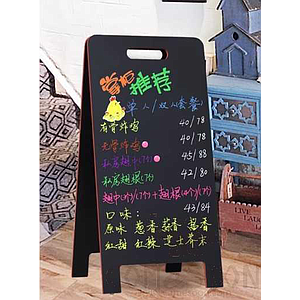 掌柜推荐
单人/双人(套餐)
有骨炸鸡 40/78
无骨炸鸡 40/78
私房翅中(7个) 45/88
私房翅根 (7个) 42/80
翅中(3个)(7个)+翅根(3个)(7个)
43/84
口味:
原味 葱香 蒜香 酱香
红甜 红辣 芝士 芥末